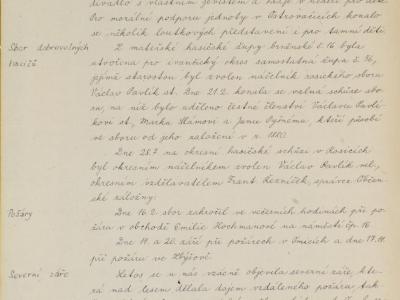 divadlo s vlastním jevištěm a hraje v neděli pro děti.
Pro morální podporu jednoty v Ostrovačicích konalo
se několik loutkových představení i pro tamní děti.
Sbor dobrovolných
hasičů
Z mateřské hasičské župy brněnské č. 16 byla
utvořena pro ivančický okres samostatná župa č. 56,
jejímž starostou byl zvolen náčelník rosického sboru
Václav Pavlík st. Dne 21.2. konala se valná schůze sbo-
ru, na níž bylo uděleno čestné členství Václavu Pavlí-
kovi st., Marku Slámovi a Janu Výtnému, kteří působí
ve sboru od jeho založení v r. 1880.
Dne 28.7. na okresní hasičské schůzi v Rosicích
byl okresním náčelníkem zvolen Václav Pavlík ml.,
okresním vzdělavatelem Frant. Řezníček, správce Občan-
ské záložny.
Požáry
Dne 16.2. sbor zakročil ve večerních hodinách při po-
žáru v obchodě Emilie Hochmanové na náměstí čp. 16
Dne 19. a 20. září při požárech v Omicích a dne 17.11.
při požáru ve Zbýšově.
Severní záře
Letos se u nás vzácně objevila severní záře, kte-
rá nad lesem dělala dojem vzdáleného požáru, tak-